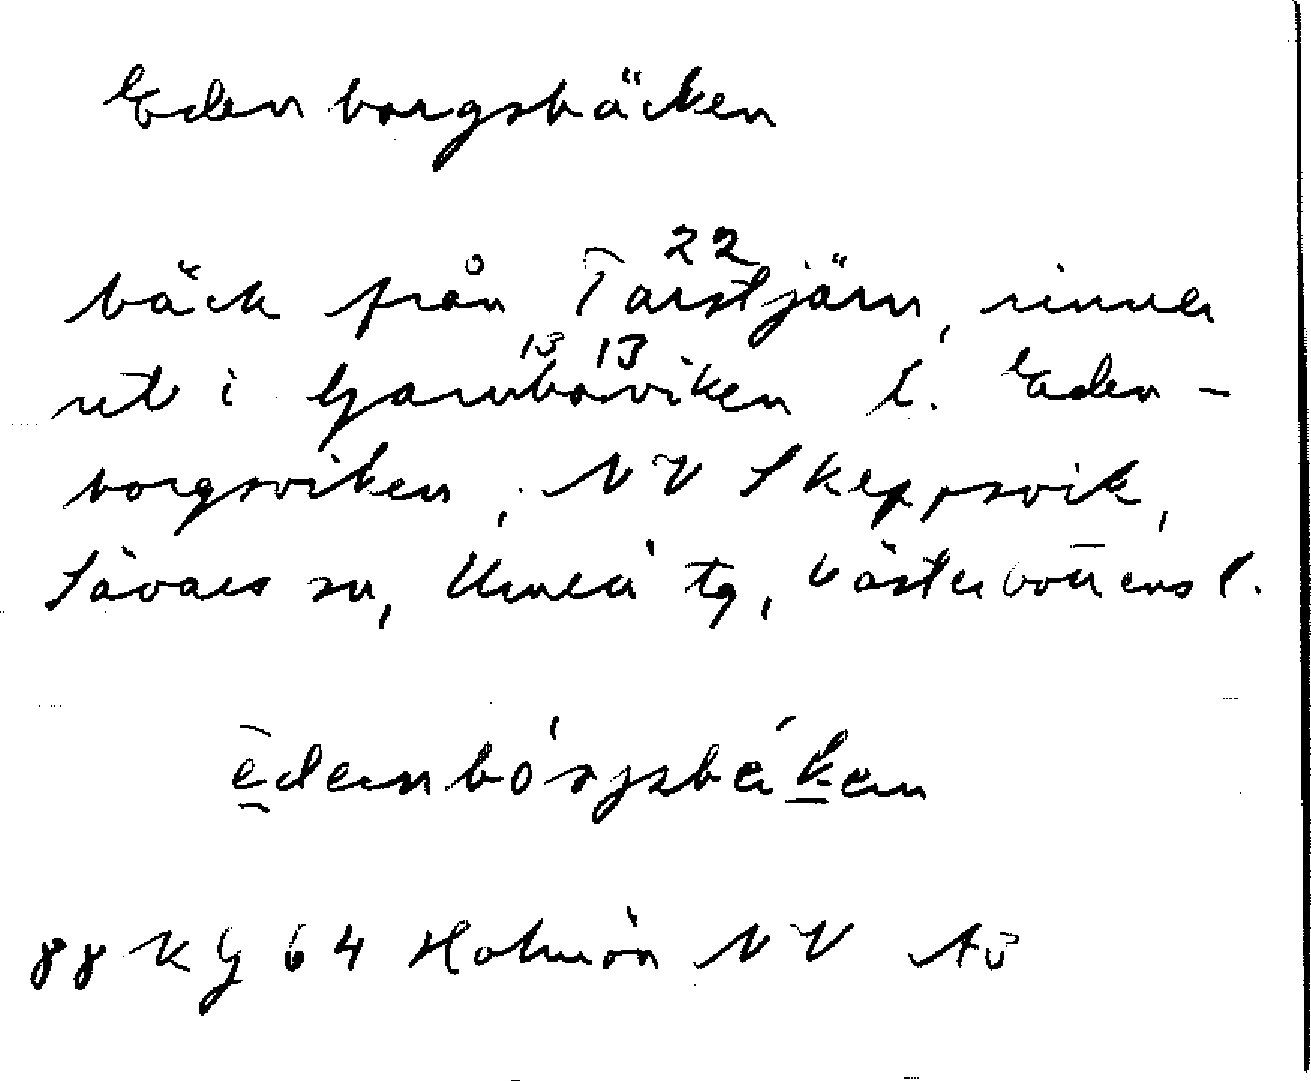 Edenborgsbäcken
22
bäck från Tarstjärn, rinner
13 13
ut i Gamboviken l. Eden-
borgsviken, NV Skeppsvik,
Sävars sn, Umeå tg, Västerbottens l.
88 KG 64 Holmön NV